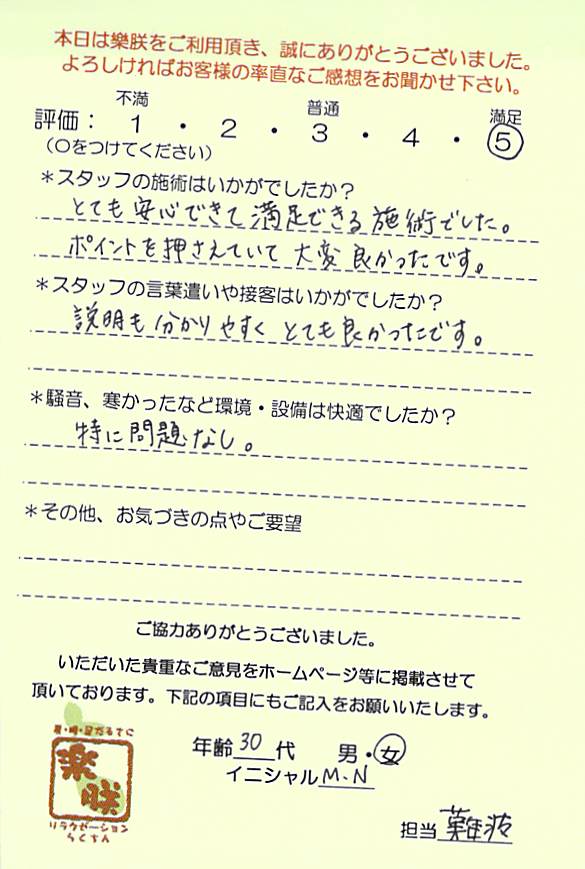 本日は樂朕をご利用頂き、誠にありがとうございました。
よろしければお客様の率直なご感想をお聞かせ下さい。
不満 普通 満足
評価： 1 ・ 2 ・ 3 ・ 4 ・ 5
（○をつけてください）
＊スタッフの施術はいかがでしたか？
とても安心できて満足できる施術でした。
ポイントを押さえていて大変良かったです。
＊スタッフの言葉遣いや接客はいかがでしたか？
説明も分かりやすくとても良かったです。
＊騒音、寒かったなど環境・設備は快適でしたか？
特に問題なし。
＊その他、お気づきの点やご要望
ご協力ありがとうございました。
いただいた貴重なご意見をホームページ等に掲載させて
頂いております。下記の項目にもご記入をお願いいたします。
年齢 30 代 男・女
イニシャル M.N
楽朕
リラクゼーション
らくちん
担当 難波